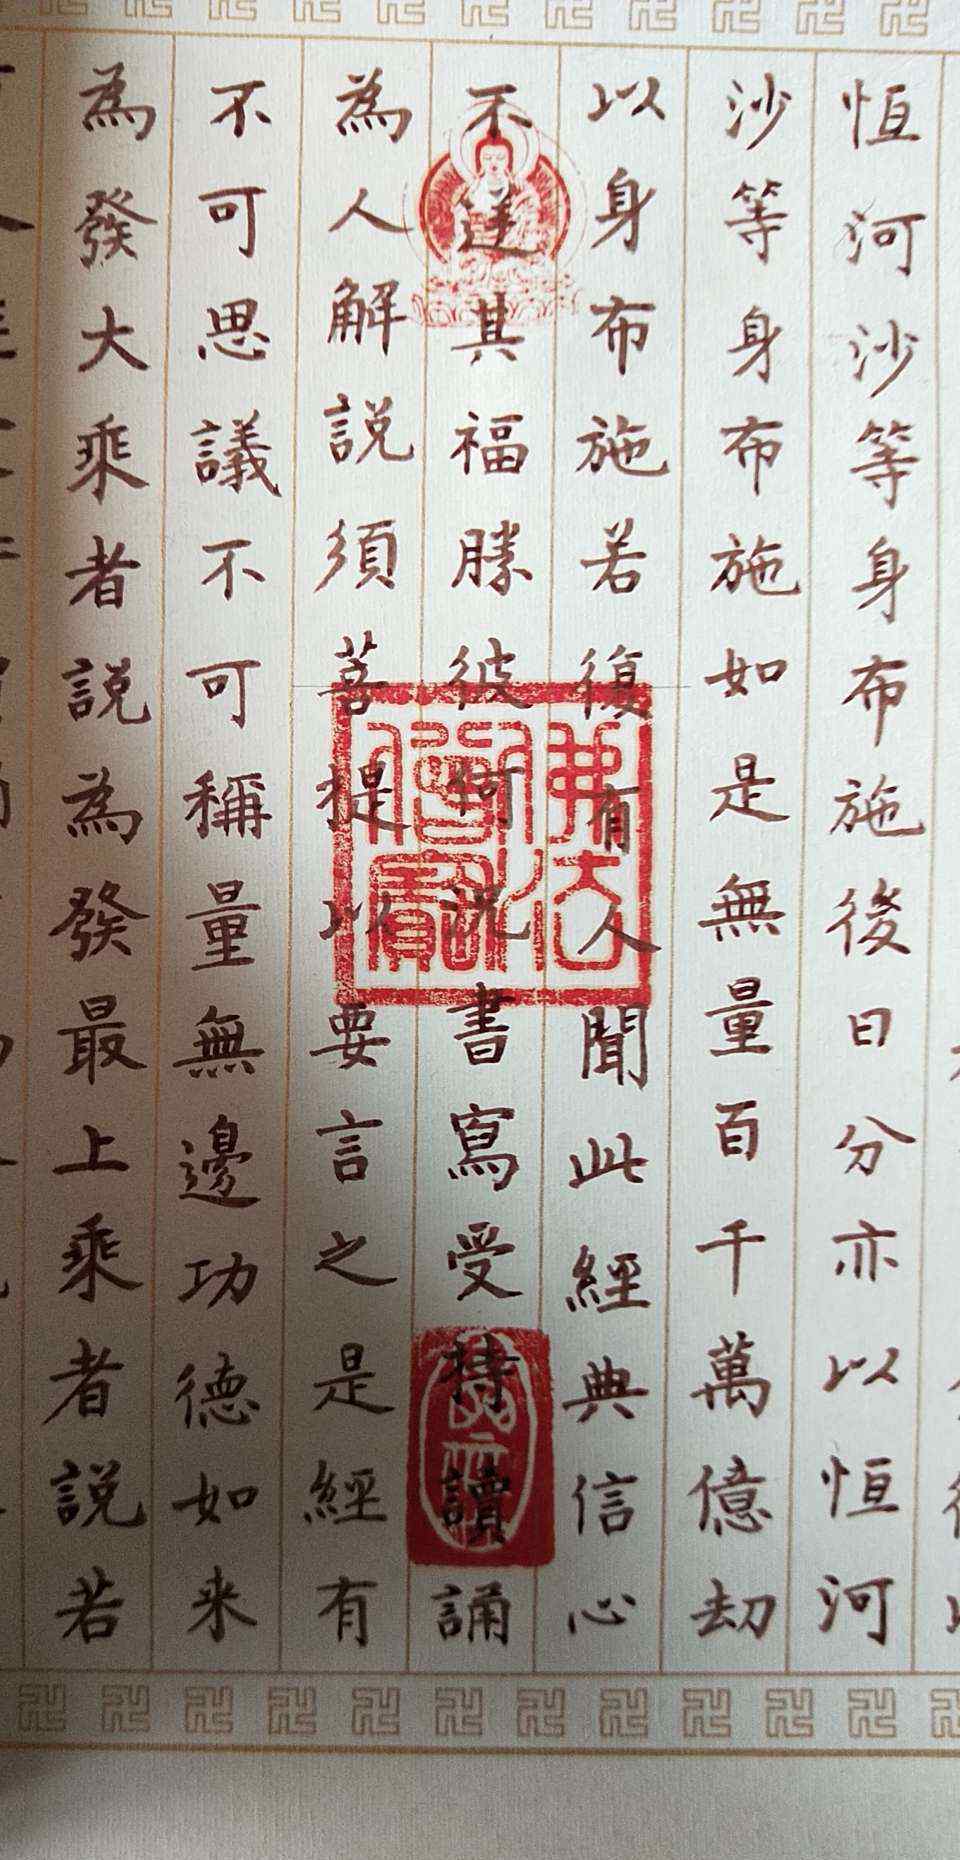 恆河沙等身布施後日分亦以恆河
沙等身布施如是無量百千萬億劫
以身布施若復有人聞此經典信心
不逆其福勝彼何況書寫受持讀誦
為人解説須菩提以要言之是經有
不可思議不可稱量無邊功德如来
為發大乘者説為發最上乘者説若
佛法僧寶